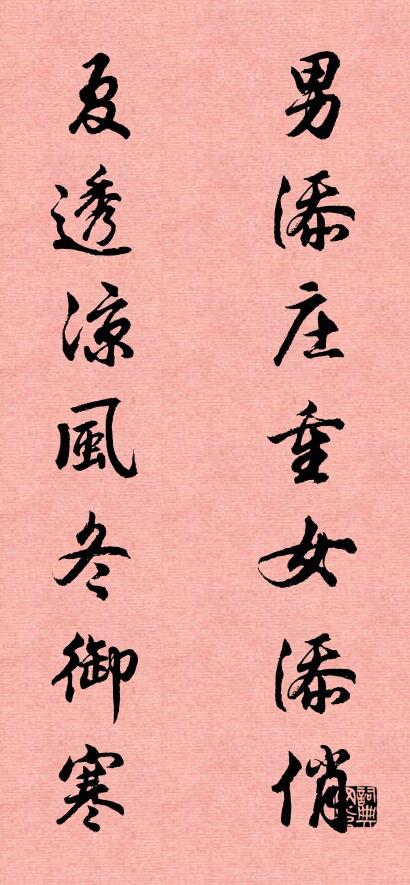 男添庄重女添俏
夏透凉風冬御寒